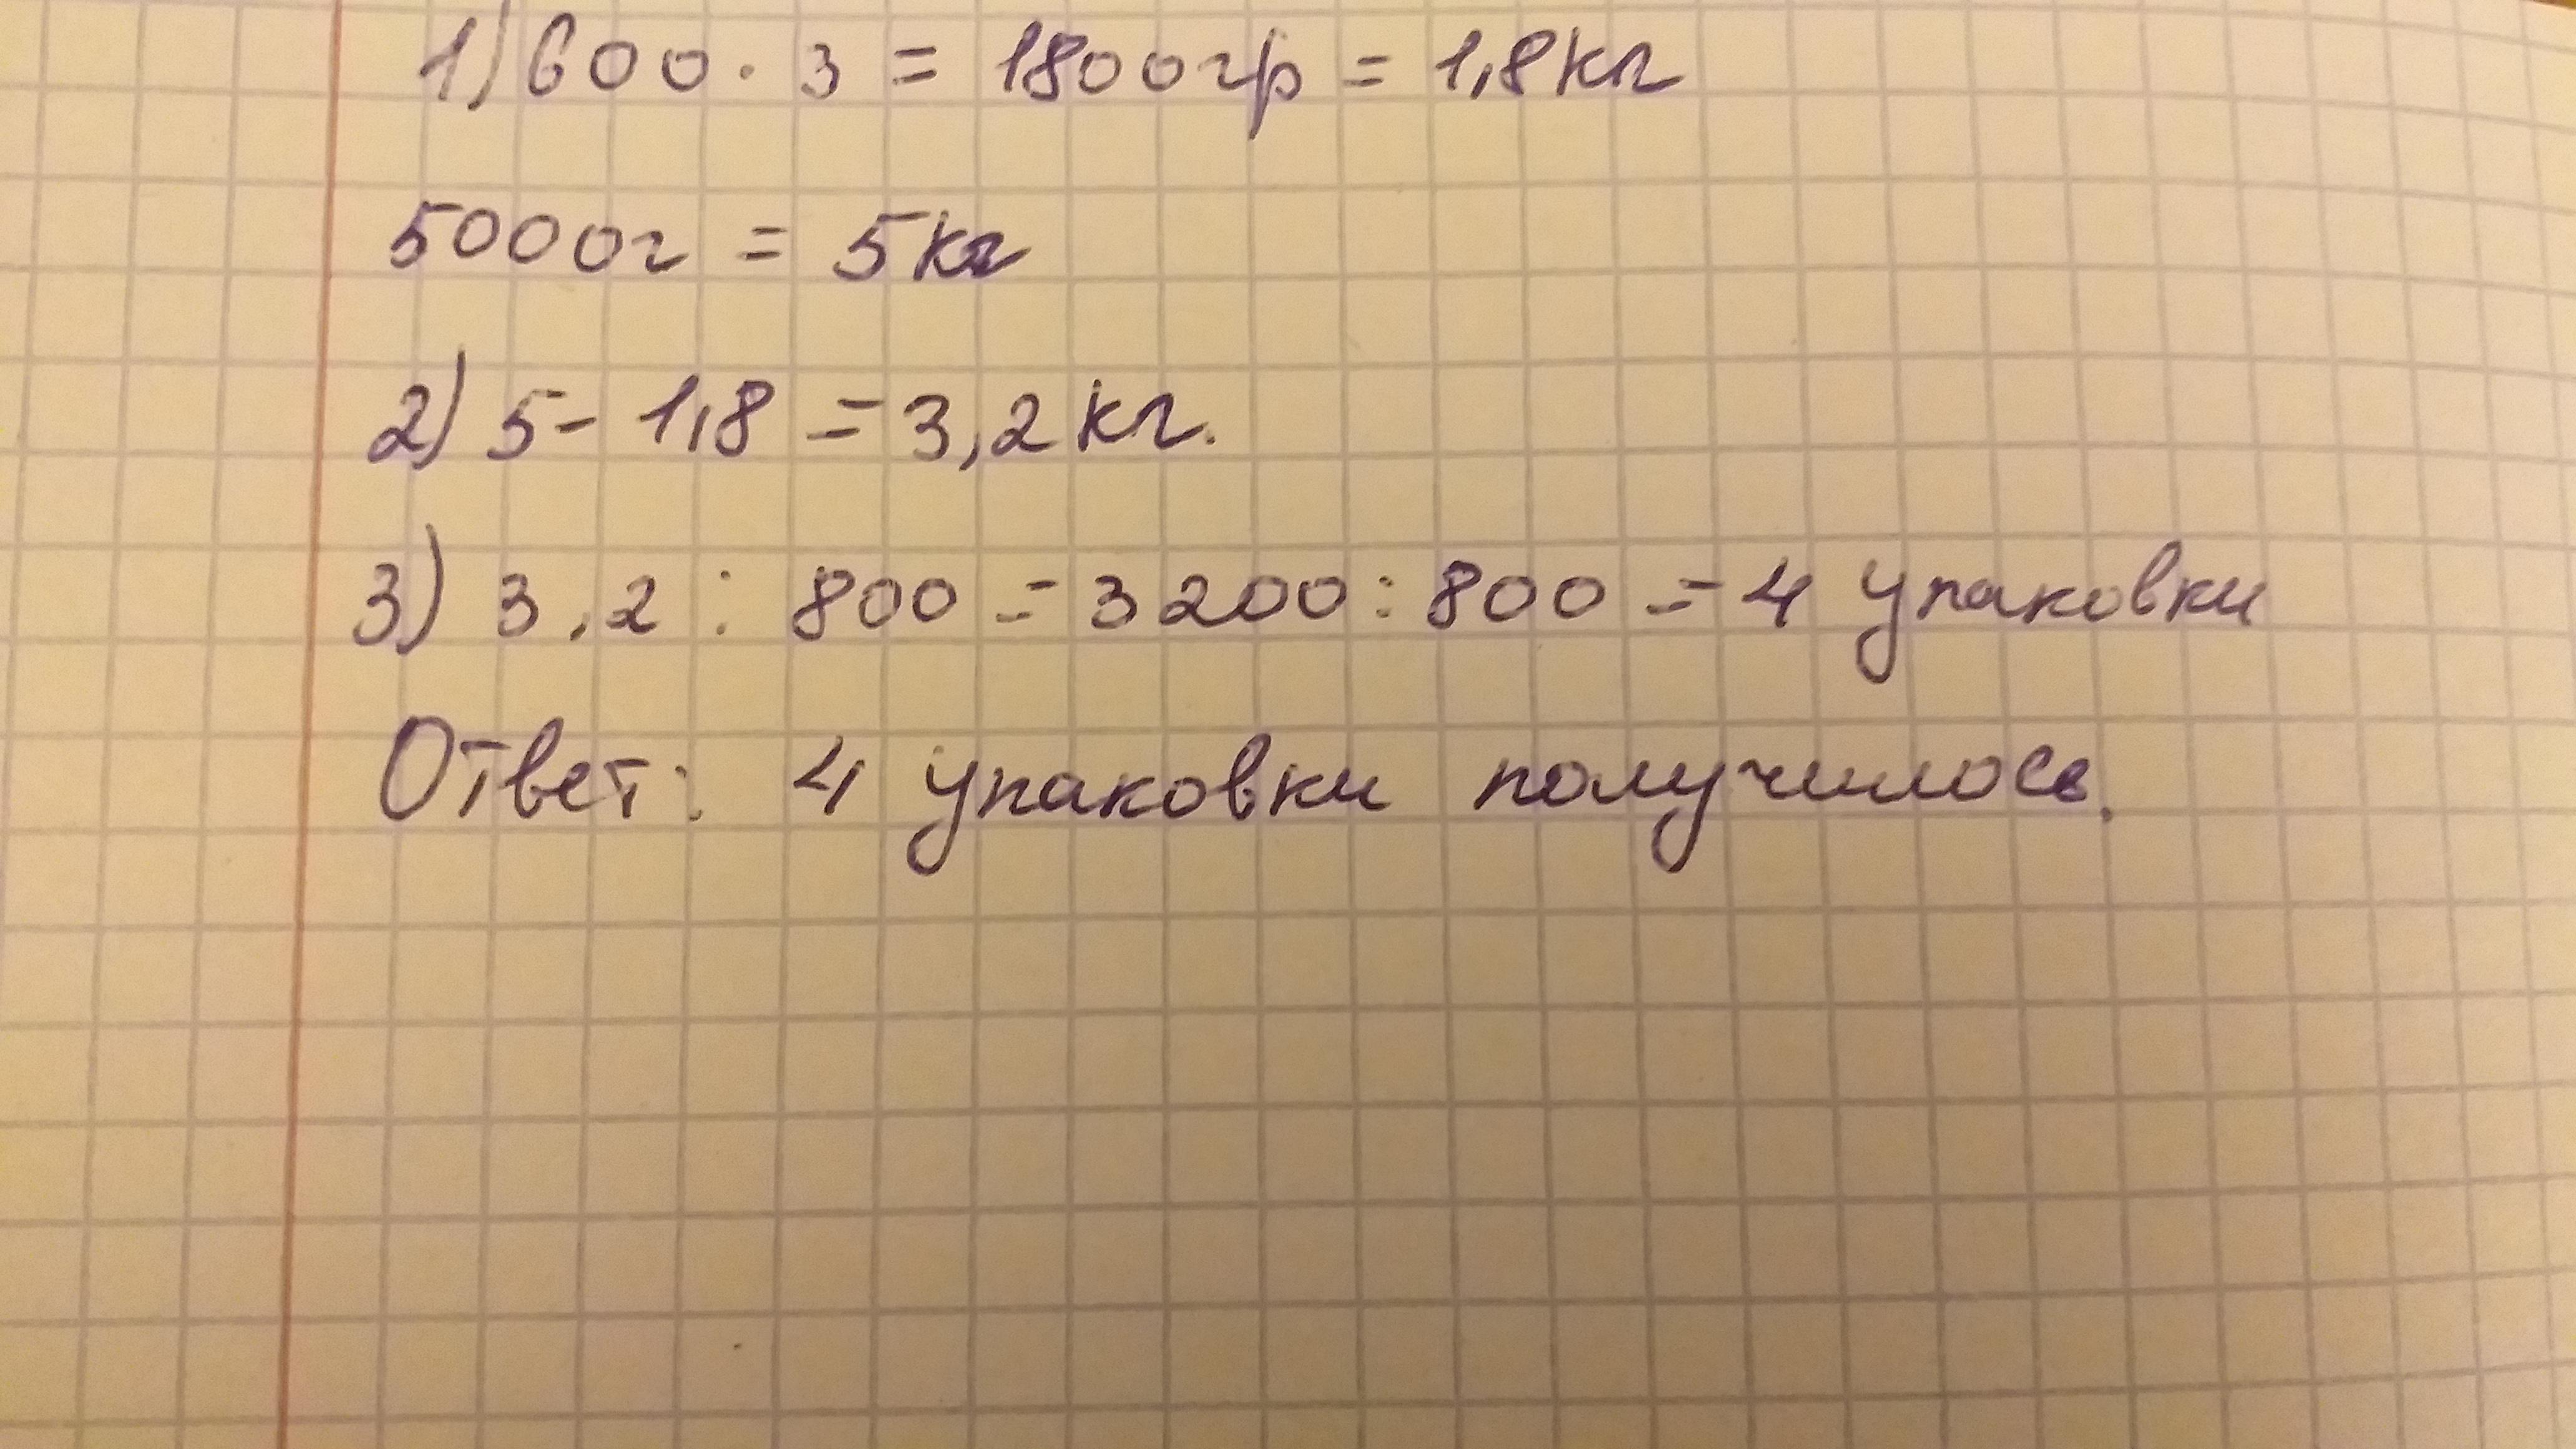 1) 600 · 3 = 1800гр = 1,8кг
5000г = 5кг
2) 5 - 1,8 = 3,2кг.
3) 3,2 : 800 = 3200 : 800 = 4 упаковки
Ответ: 4 упаковки получилось.